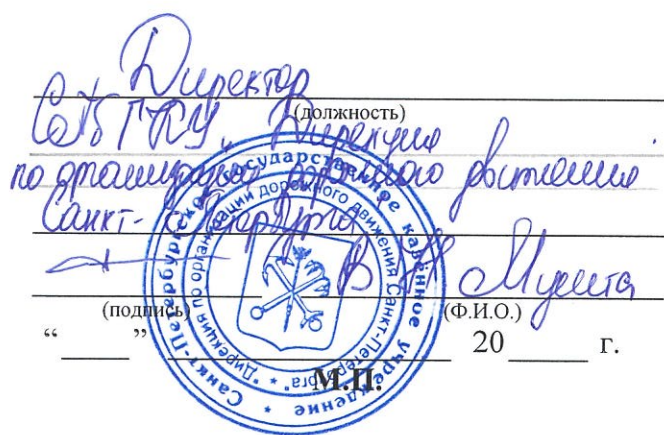 Директор
(должность)
СПб ГКУ „Дирекция
по организации дорожного движения
Санкт-Петербурга"
В. Мушта
(подпись) (Ф.И.О.)
“ ” 20 г.
М.П.
* Санкт-Петербургское государственное казённое учреждение *
"Дирекция по организации дорожного движения Санкт-Петербурга" *